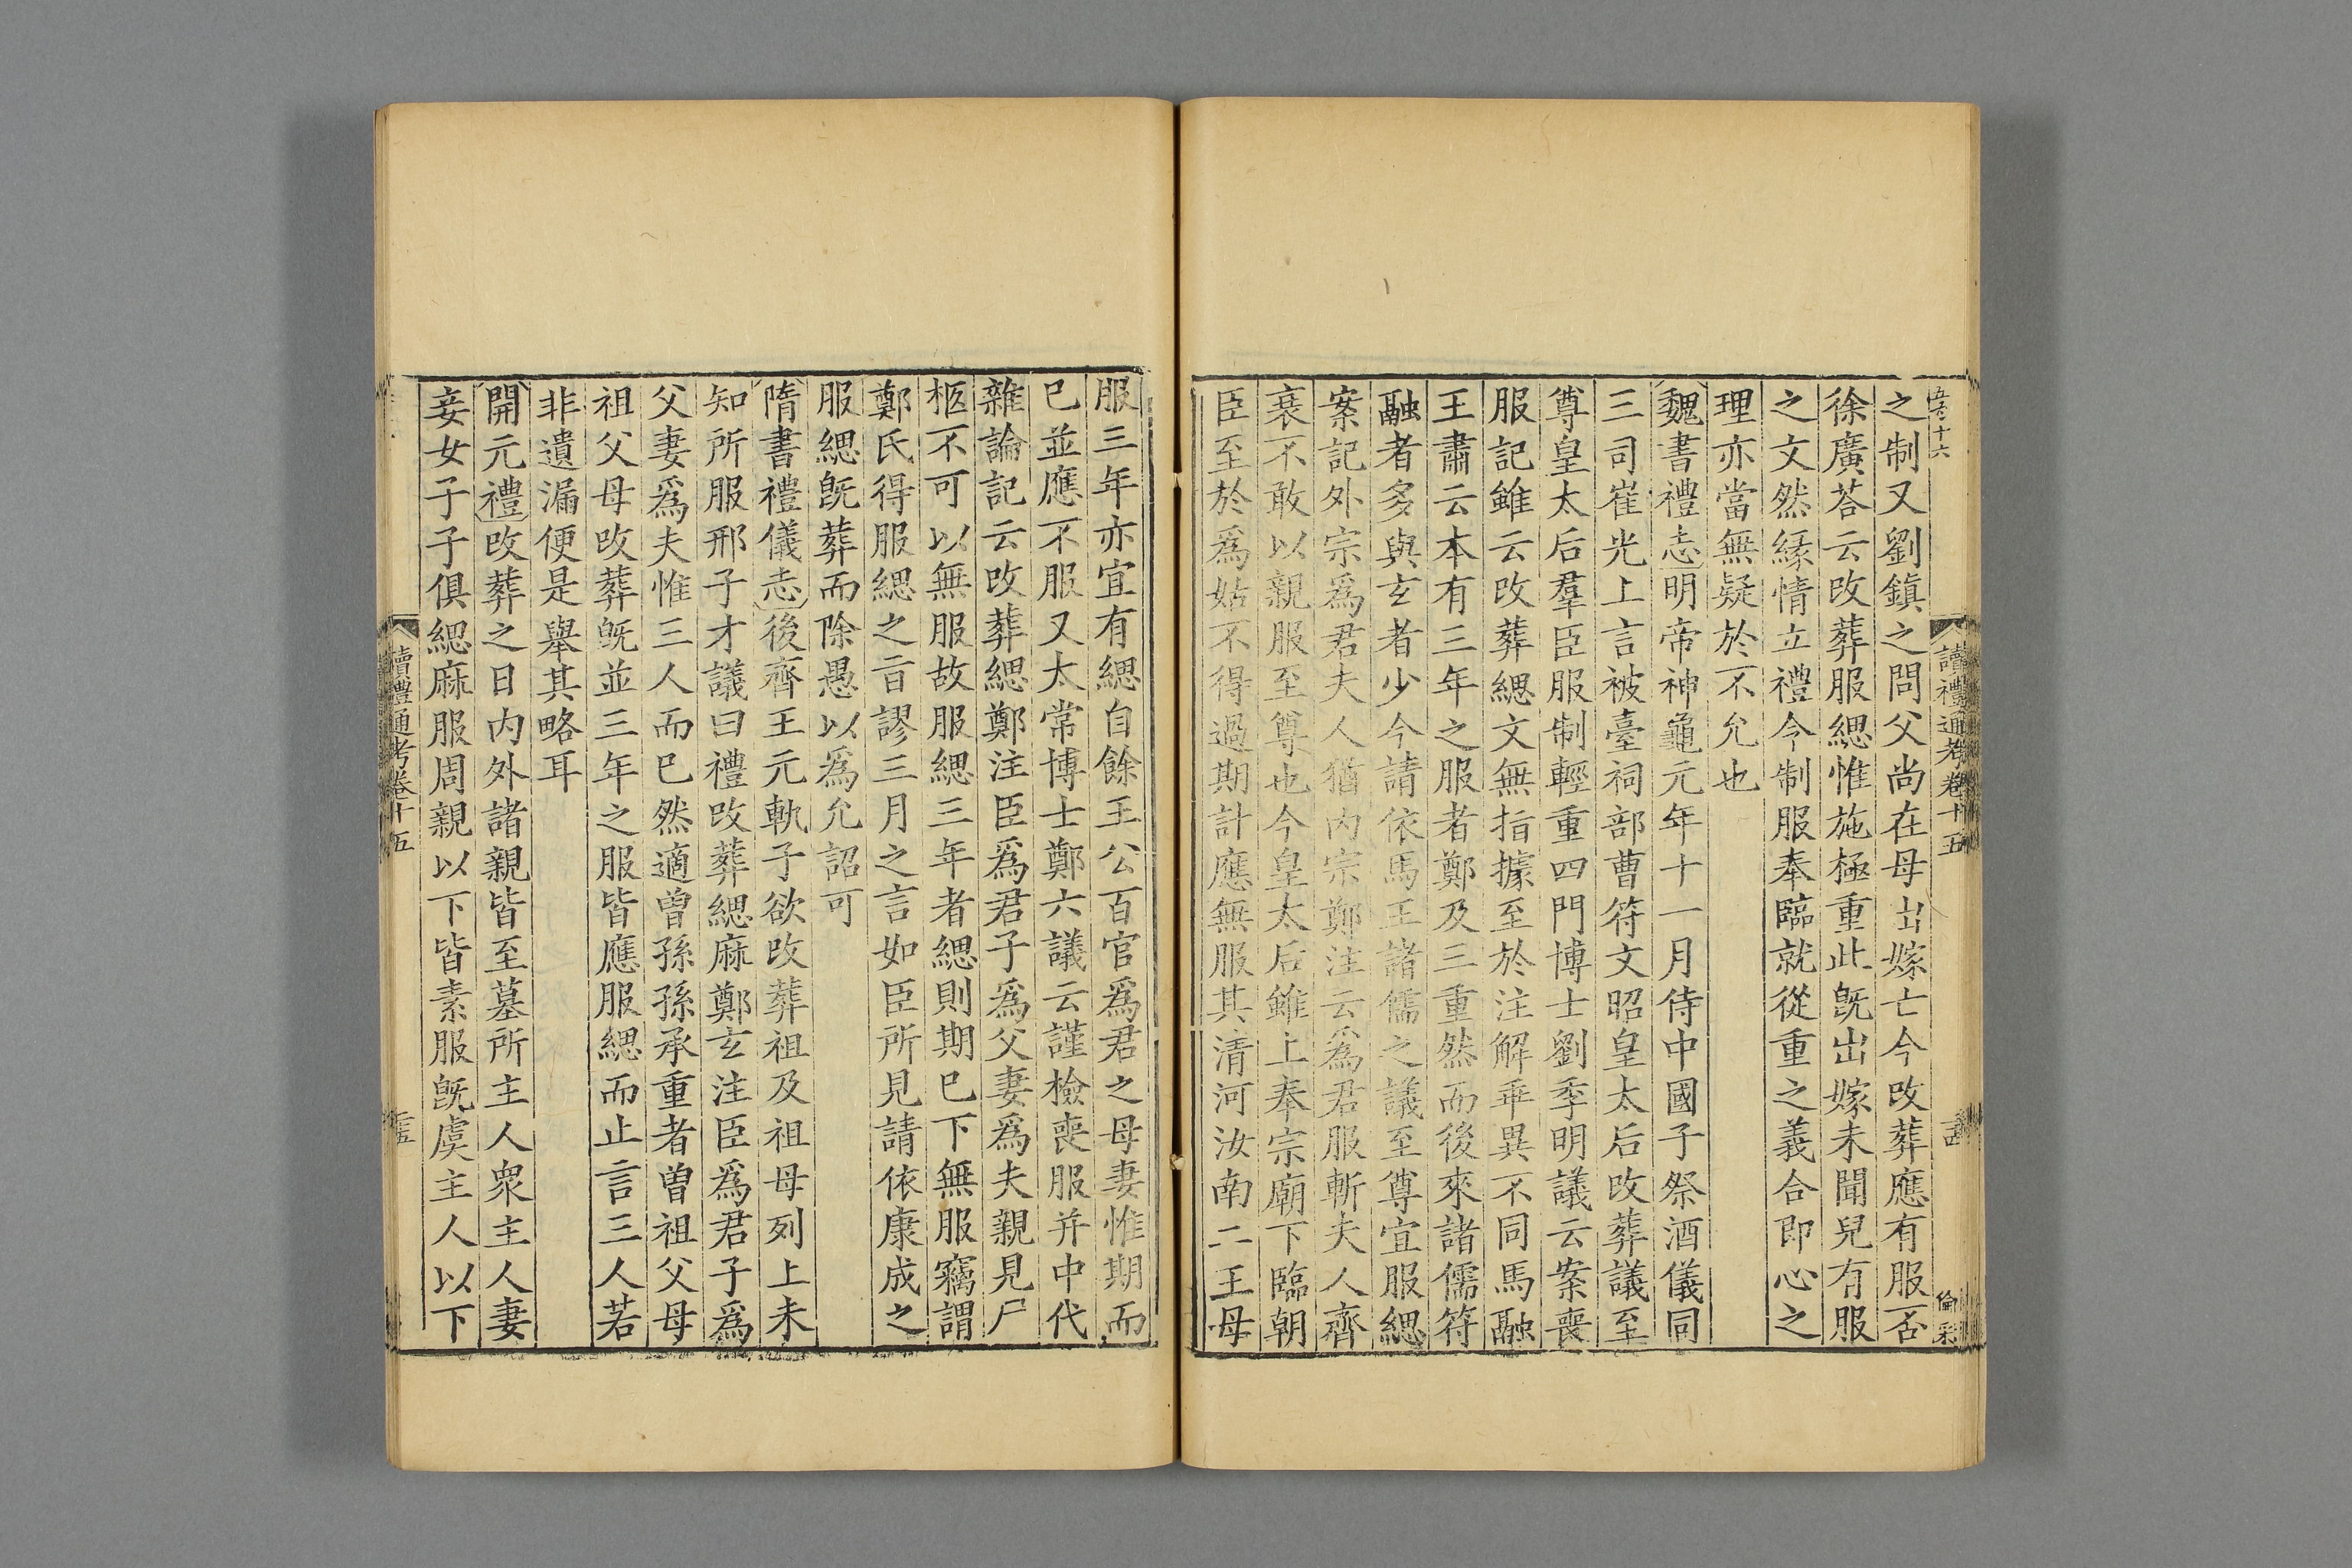 之制又劉鎮之問父尚在母出嫁亡今改葬應有服否
徐廣荅云改葬服緦惟施極重此旣出嫁未聞兒有服
之文然緣情立禮今制服奉臨就從重之義合即心之
理亦當無疑於不允也
魏書禮志明帝神龜元年十一月侍中國子祭酒儀同
三司崔光上言被臺祠部曹符文昭皇太后改葬議至
尊皇太后羣臣服制輕重四門博士劉季明議云案喪
服記雖云改葬緦文無指據至於注解乖異不同馬融
王肅云本有三年之服者鄭及三重然而後來諸儒符
融者多與玄者少今請依馬王諸儒之議至尊宜服緦
案記外宗爲君夫人猶內宗鄭注云爲君服斬夫人齊
衰不敢以親服至尊也今皇太后雖上奉宗廟下臨朝
臣至於爲姑不得過期計應無服其清河汝南二王母
讀禮通考卷十五
倫采
服三年亦宜有緦自餘王公百官爲君之母妻惟期而
已並應不服又太常博士鄭六議云謹檢喪服并中代
雜論記云改葬緦鄭注臣爲君子爲父妻爲夫親見尸
柩不可以無服故服緦三年者緦則期已下無服竊謂
鄭氏得服緦之旨謬三月之言如臣所見請依康成之
服緦旣葬而除愚以爲允詔可
隋書禮儀志後齊王元軌子欲改葬祖及祖母列上未
知所服邢子才議曰禮改葬緦麻鄭玄注臣爲君子爲
父妻爲夫惟三人而已然適曾孫孫承重者曾祖父母
祖父母改葬旣並三年之服皆應服緦而止言三人若
非遺漏便是舉其略耳
開元禮改葬之日內外諸親皆至墓所主人衆主人妻
妾女子子俱緦麻服周親以下皆素服旣虞主人以下
讀禮通考卷十五